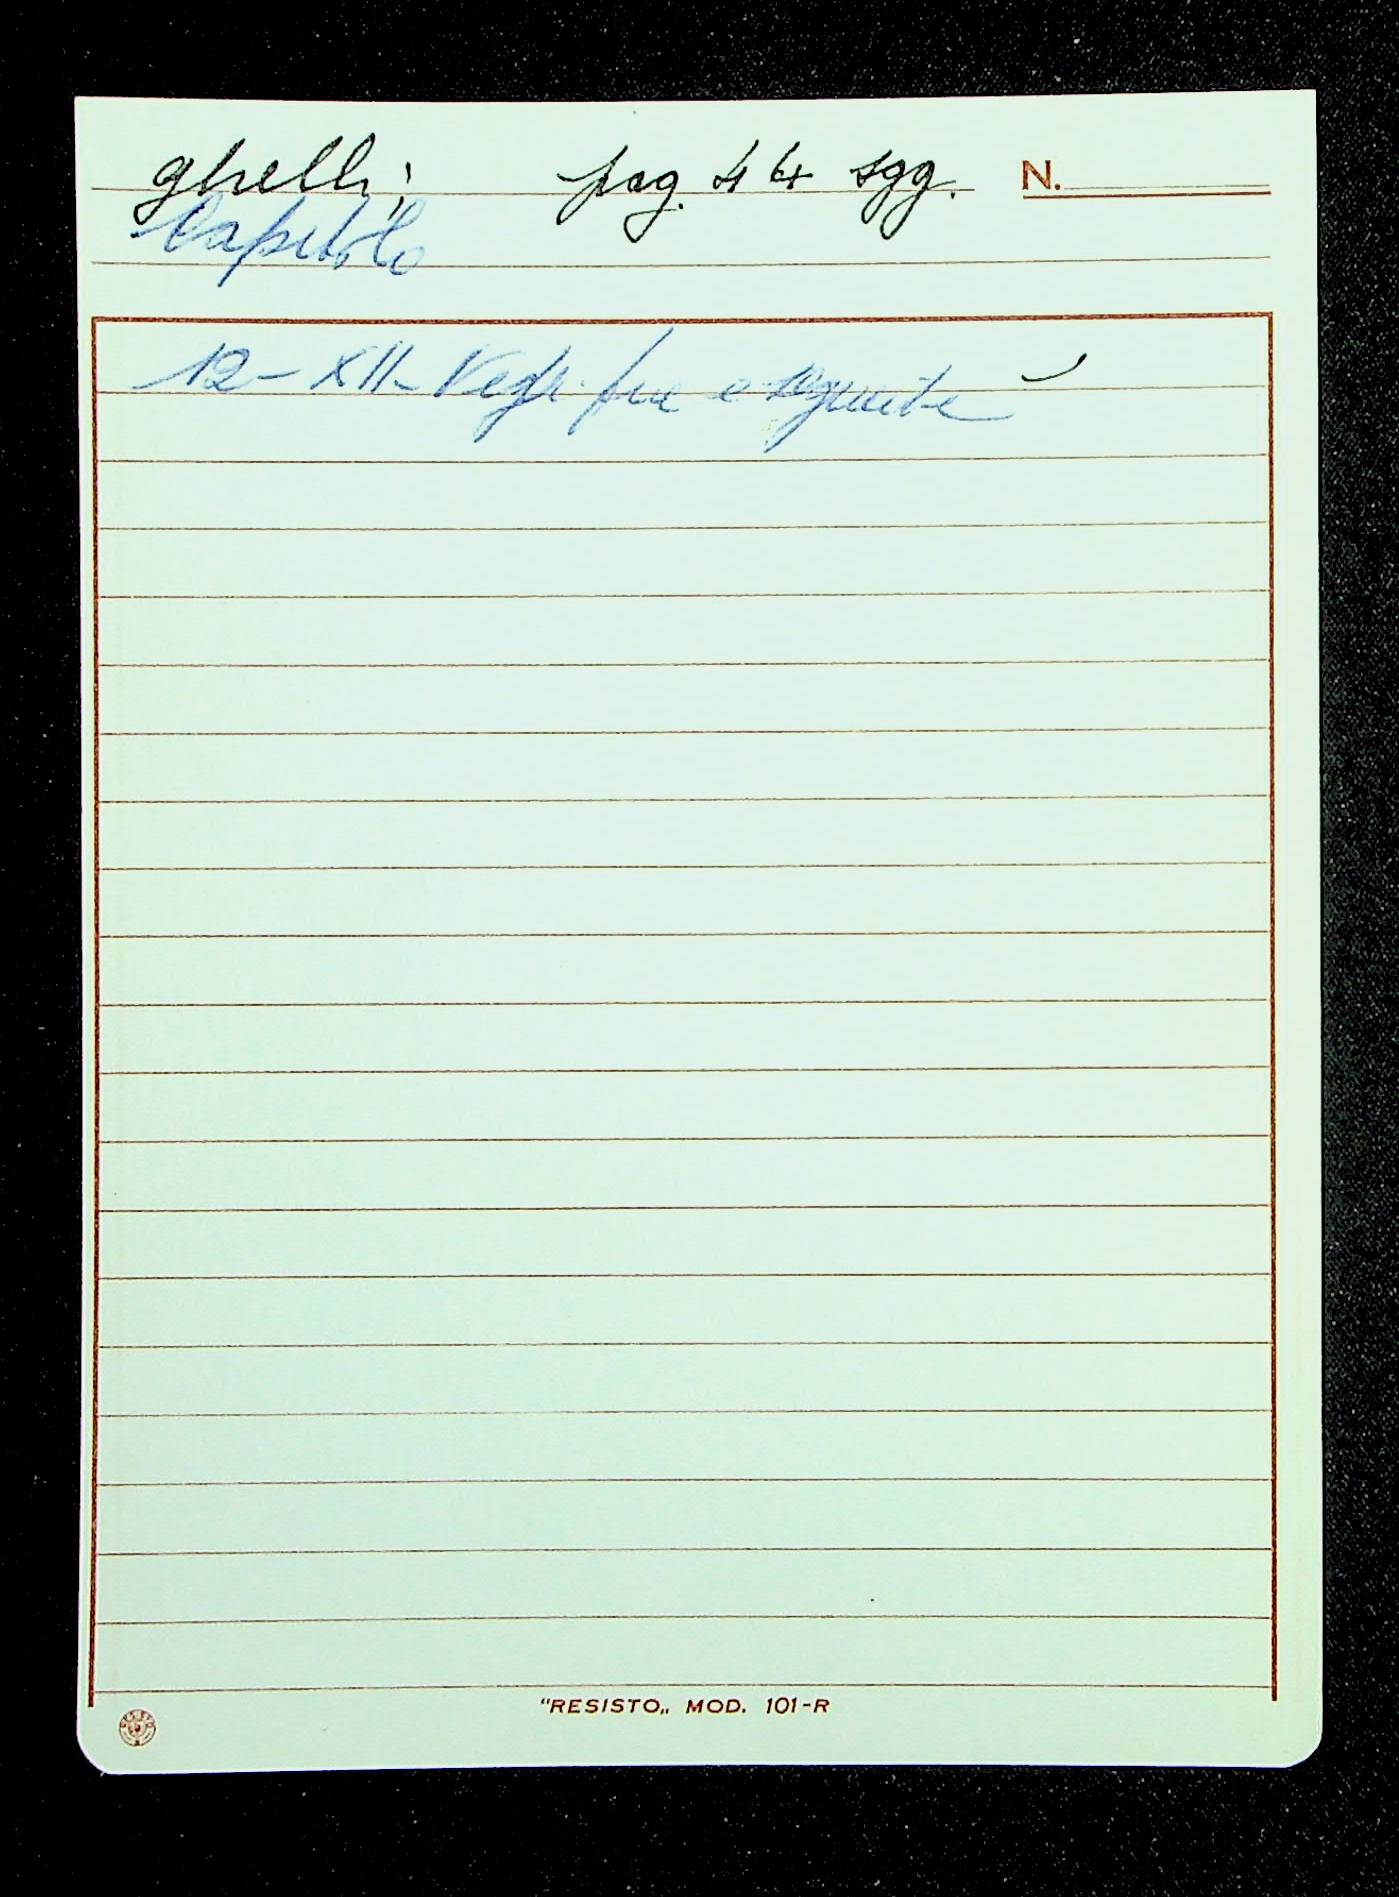 ghelli; pag. 44 sgg. N.
Capitolo
12 - XII - Vegl. fra e seguite
"RESISTO„ MOD. 101-R